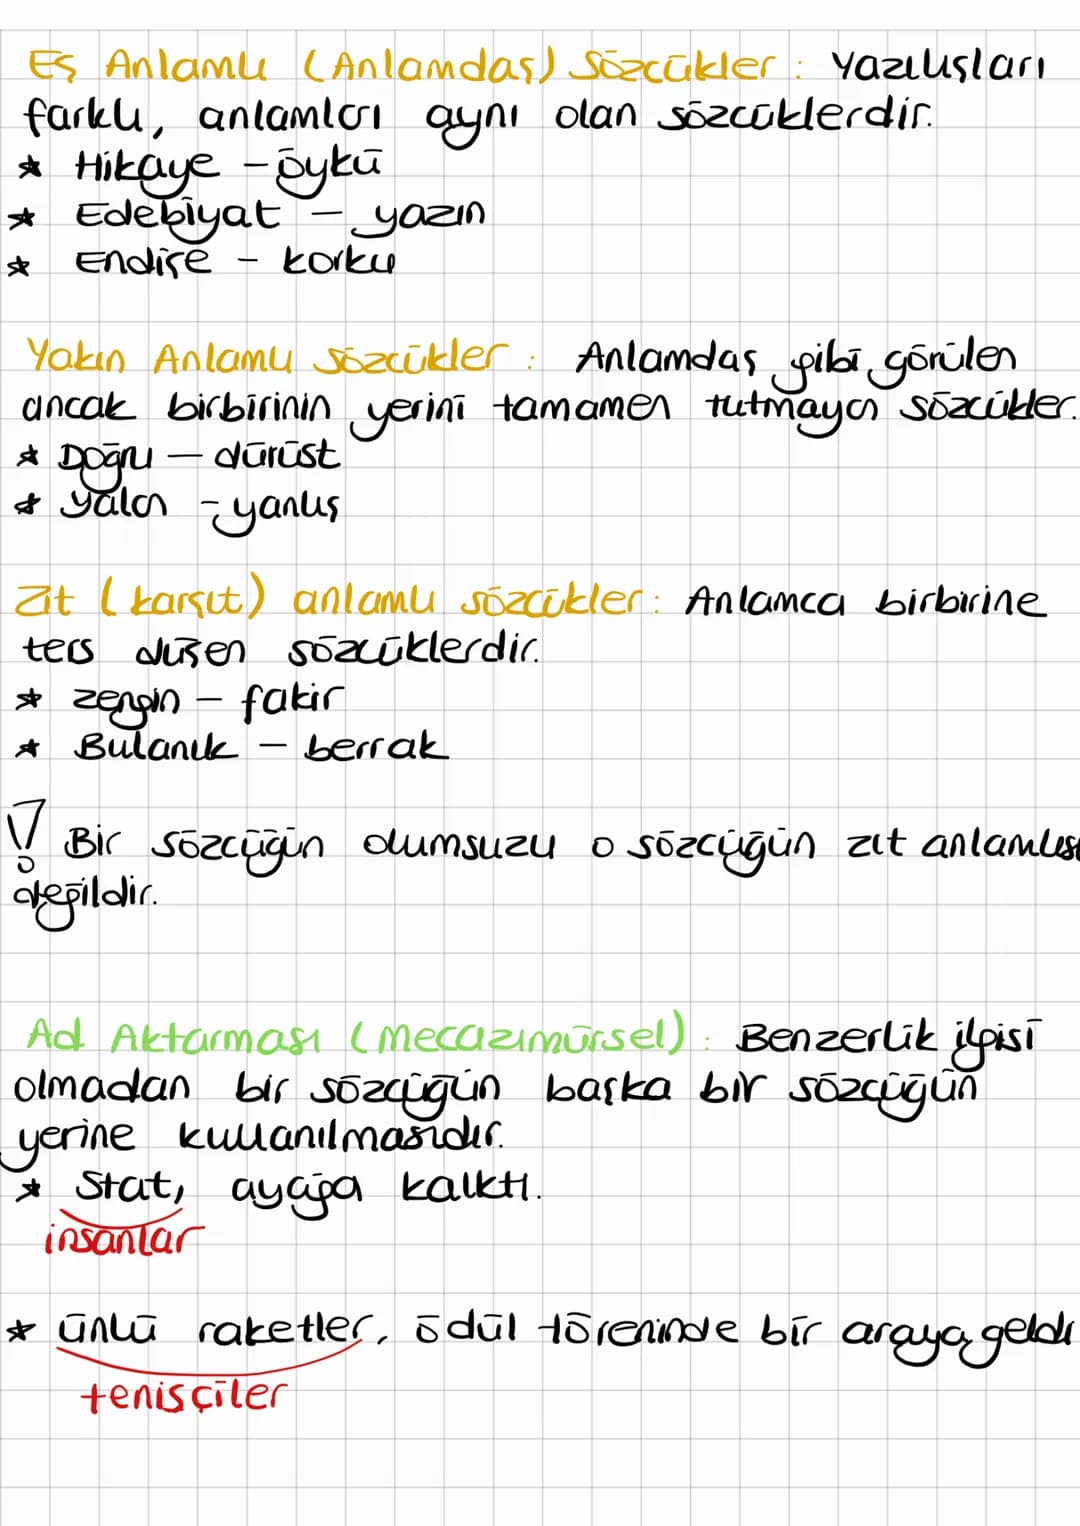 Eş Anlamlı (Anlamdaş) Sözcükler : Yazılışları
farklı, anlamları aynı olan sözcüklerdir.
★ Hikaye - öykü
★ Edebiyat - yazın
★ Endişe - korku
Yakın Anlamlı sözcükler : Anlamdaş gibi görülen
ancak birbirinin yerini tamamen tutmayan sözcükler.
★ Doğru - dürüst
★ yalan - yanlış
Zıt (karşıt) anlamlı sözcükler : Anlamca birbirine
ters düşen sözcüklerdir.
★ zengin - fakir
★ Bulanık - berrak
! Bir sözcüğün olumsuzu o sözcüğün zıt anlamlısı
değildir.
Ad Aktarması (mecazımürsel) : Benzerlik ilgisi
olmadan bir sözcüğün başka bir sözcüğün
yerine kullanılmasıdır.
★ Stat, ayağa kalktı.
insanlar
★ ünlü raketler, ödül töreninde bir araya geldi
tenisçiler